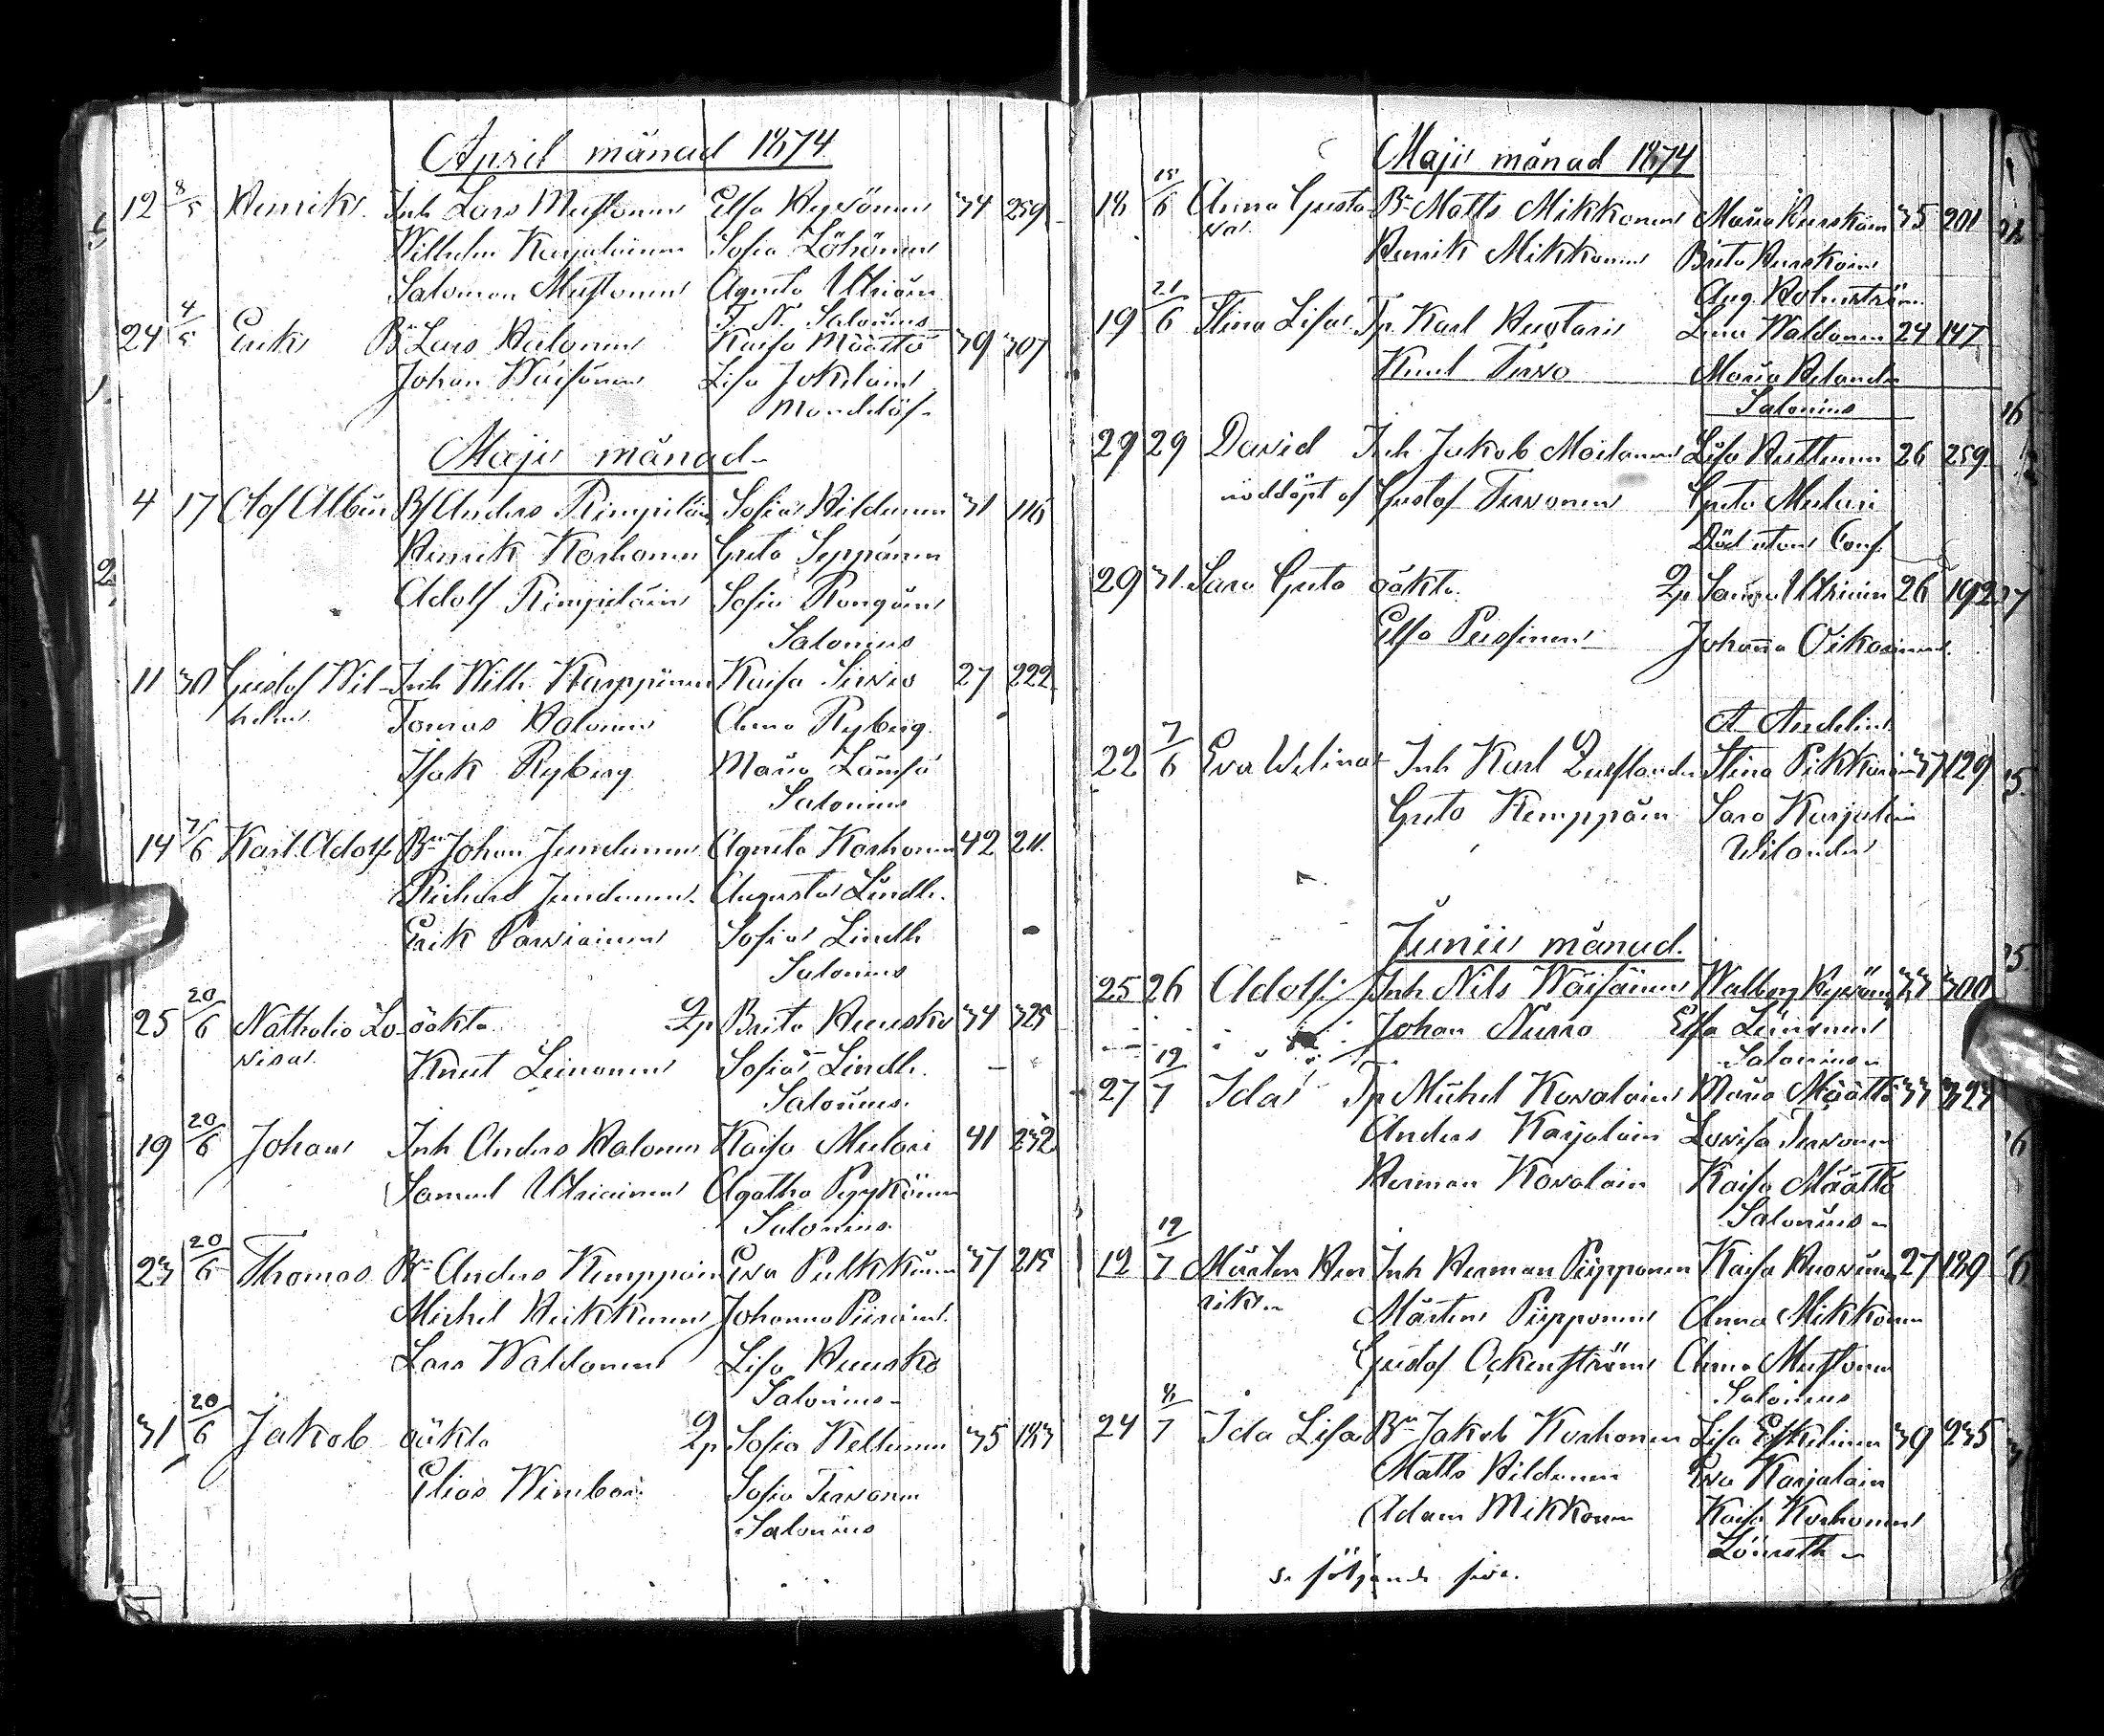 April månad 1874
12 8/5 Henrik Inh Lars Mustonen Elsa Hyvönen 34 259
Wilhelm Karjalainen Sofia Löhönen
Salomon Mustonen Agneta Utriain
F. N. Salonius
24 4/5 Erik Bn Lars Halonen Kaisa Määttä 39 307
Johan Wäisänen Lisa Jokelain
Mondelöf
Maji månad
4 17 Olof Albin Bf Anders Rimpiläin Sofia Hildunen 31 116
Henrik Korhonen Greta Seppänen
Adolf Rimpiläin Sofia Rongain
Salonius
11 30 Gustaf Wil- Inh Wilh. Kamppinen Kaisa Sirviö 27 222
helm Tomas Halonen Anna Ryberg
Isak Ryberg Maria Lämsä
Salonius
14 7/6 Karl Adolf Bn Johan Juntunen Agneta Korhonen 42 211
Richard Juntunen Augusta Lindh.
Erik Parviainen Sofia Lindh
Salonius
25 20/6 Nathalia Lo- oäkta Qp Brita Huusko 34 325
visa Knut Leinonen Sofia Lindh.
Salonius
19 20/6 Johan Inh Anders Halonen Kaisa Mulari 41 232
Samuel Utriainen Agatha Pyykönen
Salonius
23 20/6 Thomas Bn Anders Kemppain Eva Pulkkinen 37 215
Michel Heikkinen Johanna Piirain
Lars Waldonen Lisa Huusko
Salonius
31 20/6 Jakob oäkta Qp Sofia Keltunen 35 183
Elias Wimbar Sofia Tervonen
Salonius
Maji månad 1874
18 18/6 Anna Gusta- Bn Matts Mikkonen Maria Hurskain 35 201
va Henrik Mikkonen Brita Hurskain
Aug. Holmström
19 21/6 Stina Lisa Tp Karl Huotari Lena Waldonen 24 147
Knut Tervo Maria Helander
Salonius
29 29 David Inh Jakob Moilanen Lisa Huttunen 26 259
nöddöpt af Gustaf Tervonen Greta Mulari
Död utan Conf.
29 31 Sara Greta oäkta Qp Utriain 26 192
Elsa Pussinen Johanna Oikarinen
A. Andelin
22 7/6 Eva Welina Inh Karl Stina Pikkarain 37 129
Greta Kemppain Sara Karjalain
Wilander
Junii månad.
25 26 Adolf Inh Nils Wäisänen Walborg Hyvönen 33 300
Johan Nurro Elsa Leinonen
Salonius
27 19/7 Ida Tp Michel Kovalain Maria Määttä 33 323
Anders Karjalain Lovisa Tervonen
Herman Kovalain Kaisa Määttä
Salonius
12 19/7 Mårten Hen Inh Herman Piipponen Kaisa Huovinen 27 189
rik Mårten Piipponen Anna Mikkonen
Gustaf Ockenström Anna Mustonen
Salonius
24 8/7 Ida Lisa Bn Jakob Korhonen Lisa Eskelinen 39 235
Matts Hildunen Eva Karjalain
Adam Mikkonen Kaisa Korhonen
Lönroth
se följande sida.